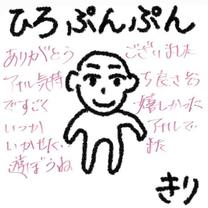 ひろぷんぷん
ありがとう ございました
アナル気持 ち良さそう
ですごく 嬉しかった
いつか アナルで
いかせた… また
遊ぼうね
きり